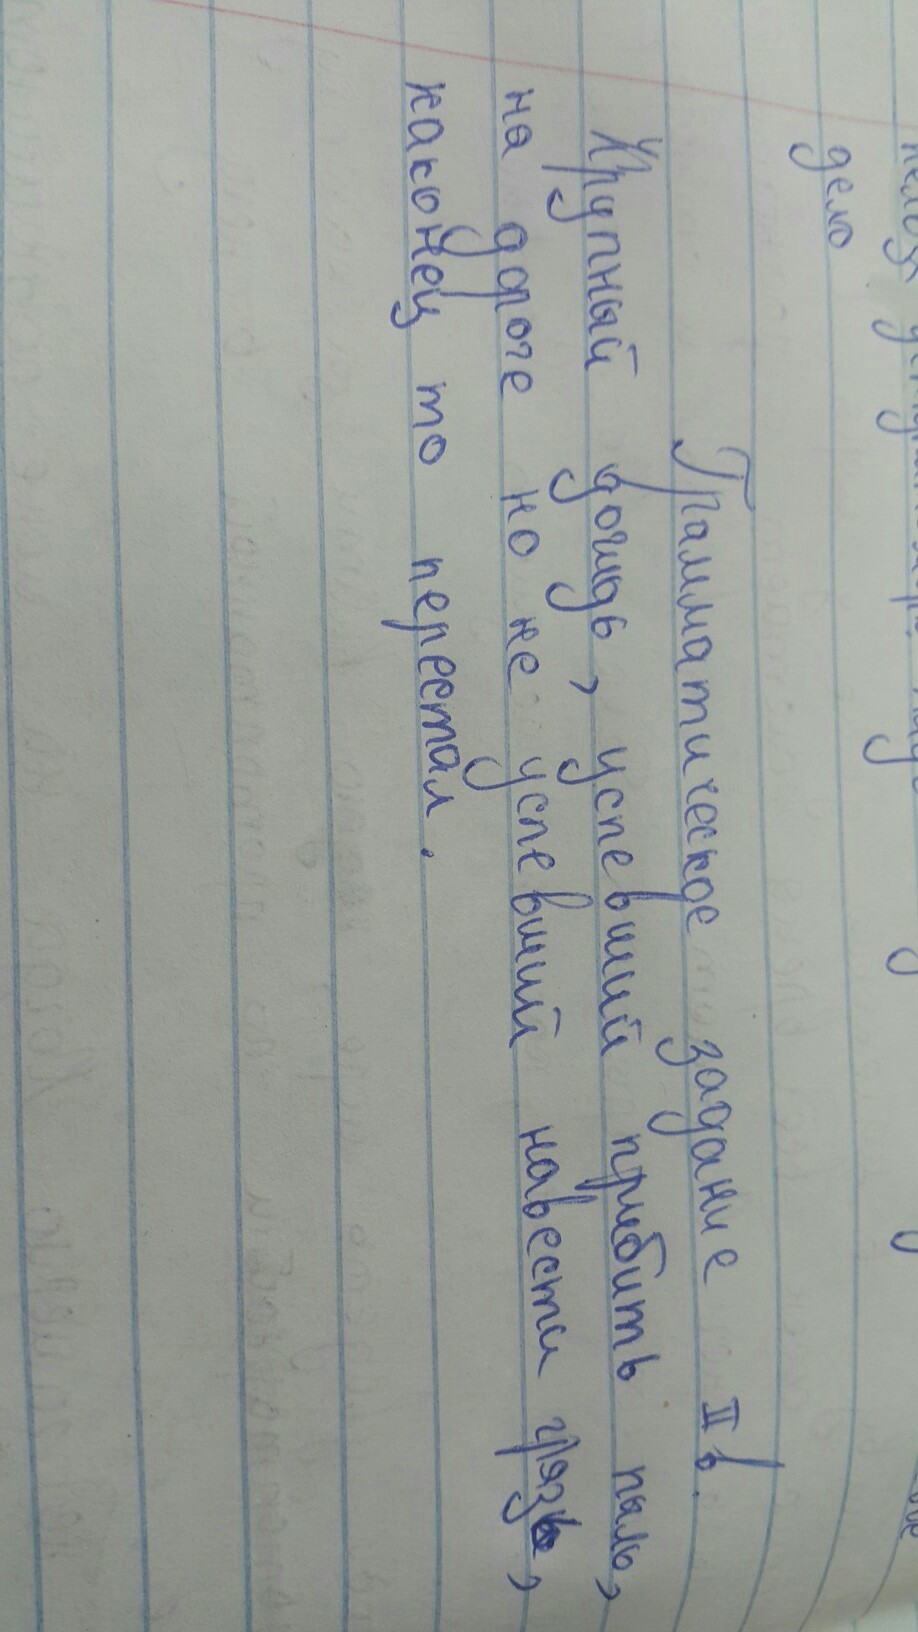 дело
Грамматическое задание II в.
Крупный дошдь, успевший прибить пыль,
на дороге но не успевший навести грязь,
наконец то перестал.